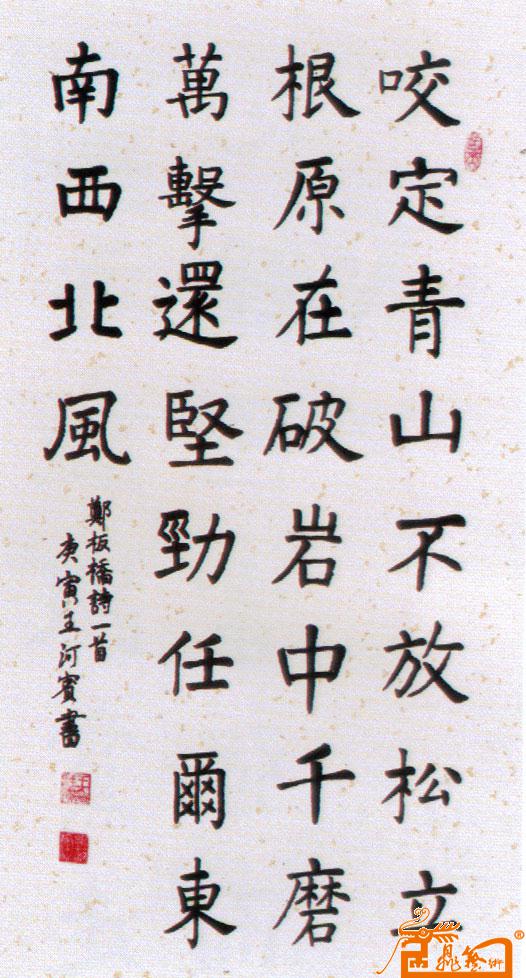 咬定青山不放松立
根原在破岩中千磨
萬擊還堅勁任爾東
南西北風
鄭板橋詩一首
庚寅王河賓書